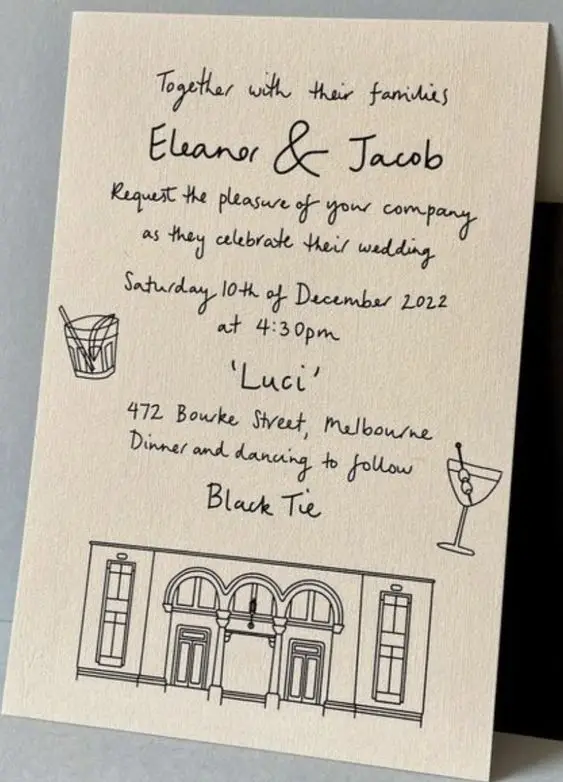 Together with their families
Eleanor & Jacob
Request the pleasure of your company
as they celebrate their wedding
Saturday 10th of December 2022
at 4:30pm
'Luci'
472 Bourke Street, Melbourne
Dinner and dancing to follow
Black Tie